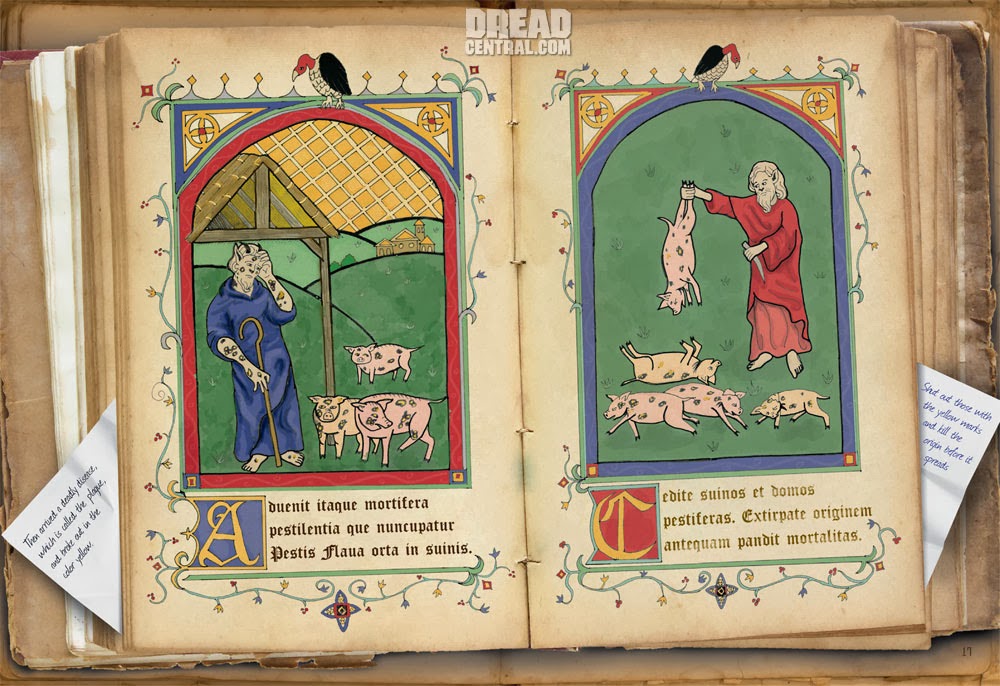 DREAD
CENTRAL.COM
Aduenit itaque mortifera
pestilentia que nuncupatur
Pestis Flaua orta in suinis.
Tedite suinos et domos
pestiferas. Extirpate originem
antequam pandit mortalitas.
Then arrived a deadly disease,
which is called the plague,
and broke out in the
color yellow.
Shut out those with
the yellow marks
and kill the
origin before it
spreads
17